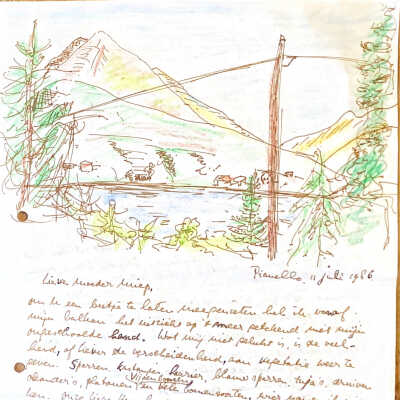 Pianello, 11 juli 1986
Lieve moeder Miep,
om je een beetje te laten meegenieten heb ik vanaf
mijn balkon het uitzicht op 't meer getekend met mijn
ongeschoolde hand. Wat mij niet gelukt is, is de veel-
heid, of liever de verscheidenheid, aan vegetatie weer te
geven. Sparren, kastanjes, laurier, blauwe sparren, tuja's, druiven
oleander's, platanen en vele bomensoorten, hier